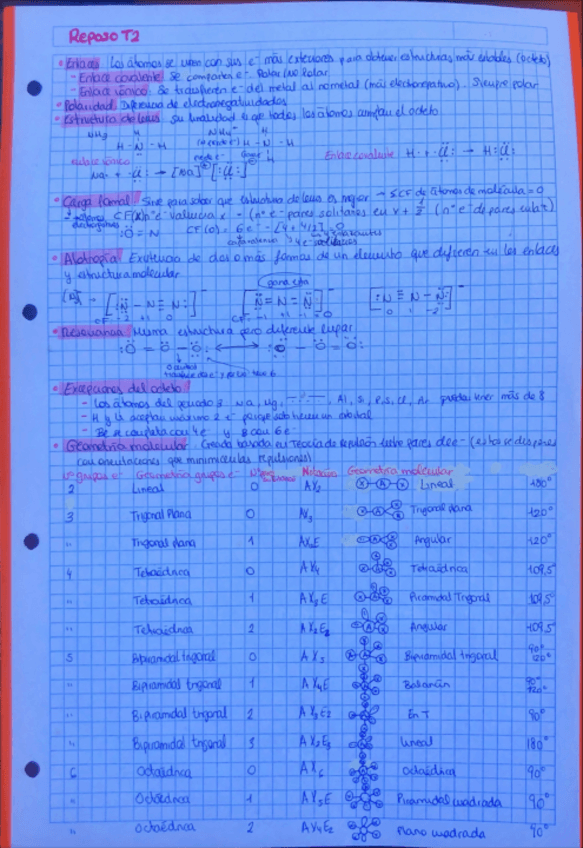 Reposo T2
• Enlaces Los átomos se unen con sus e⁻ más exteriores para obtener estructuras más estables (octeto)
- Enlace covalente Se comparten e⁻. Polar/No Polar
- Enlace iónico. Se transfieren e⁻ del metal al no metal (más electronegativo). Siempre polar
• Polaridad Diferencia de electronegatividades
• Estructura de lewis Su finalidad es que todos los átomos cumplan el octeto
NH₃ H NH₄⁺ H
H - N - H H - N - H
Enlace iónico Enlace covalente H· + ·Cl: → H:Cl:
Na· + ·Cl: → [Na]⁺ [:Cl:]⁻
• Carga formal Sirve para saber que estructura de lewis es mejor → ΣCF de átomos de molécula = 0
CF(x) nº e⁻ valencia x - (nº e⁻ pares solitarios en x + ½ (nº e⁻ de pares enlaz)
:O = N CF(O) = 6e⁻ - [4 + 4/2] = 0
• Alotropía Existencia de dos o más formas de un elemento que difieren en los enlaces
y estructura molecular
[:N - N ≡ N:]⁻ [N = N = N]⁻ [:N ≡ N - N:]⁻
CF = -2 +1 0 CF = -1 +1 -1 0 1 -2
• Resonancia Misma estructura pero diferente lugar
:O = O - O: ⟷ :O - O = O:
• Excepciones del octeto
- Los átomos del periodo 3 Na, Mg, Al, Si, P, S, Cl, Ar pueden tener más de 8
- H y Li aceptan máximo 2 e⁻ porque solo tienen un orbital
- Be se completa con 4e⁻ y B con 6e⁻
• Geometría molecular. Creada basado en Teoría de repulsión entre pares de e⁻ (estos se disponen
con orientaciones que minimicen las repulsiones)
Nº grupos e⁻ Geometría grupos e⁻ Nº pares Notación Geometría molecular
2 Lineal 0 AX₂ Lineal 180°
3 Trigonal Plana 0 AX₃ Trigonal plana 120°
" Trigonal plana 1 AX₂E Angular 120°
4 Tetraédrica 0 AX₄ Tetraédrica 109,5°
" Tetraédrica 1 AX₃E Piramidal Trigonal 109,5°
" Tetraédrica 2 AX₂E₂ Angular 109,5°
5 Bipiramidal trigonal 0 AX₅ Bipiramidal trigonal 90° 120°
" Bipiramidal trigonal 1 AX₄E Balancín 90° 120°
" Bipiramidal trigonal 2 AX₃E₂ En T 90°
" Bipiramidal trigonal 3 AX₂E₃ Lineal 180°
6 Octaédrica 0 AX₆ Octaédrica 90°
" Octaédrica 1 AX₅E Piramidal cuadrada 90°
" Octaédrica 2 AX₄E₂ Plano cuadrada 90°